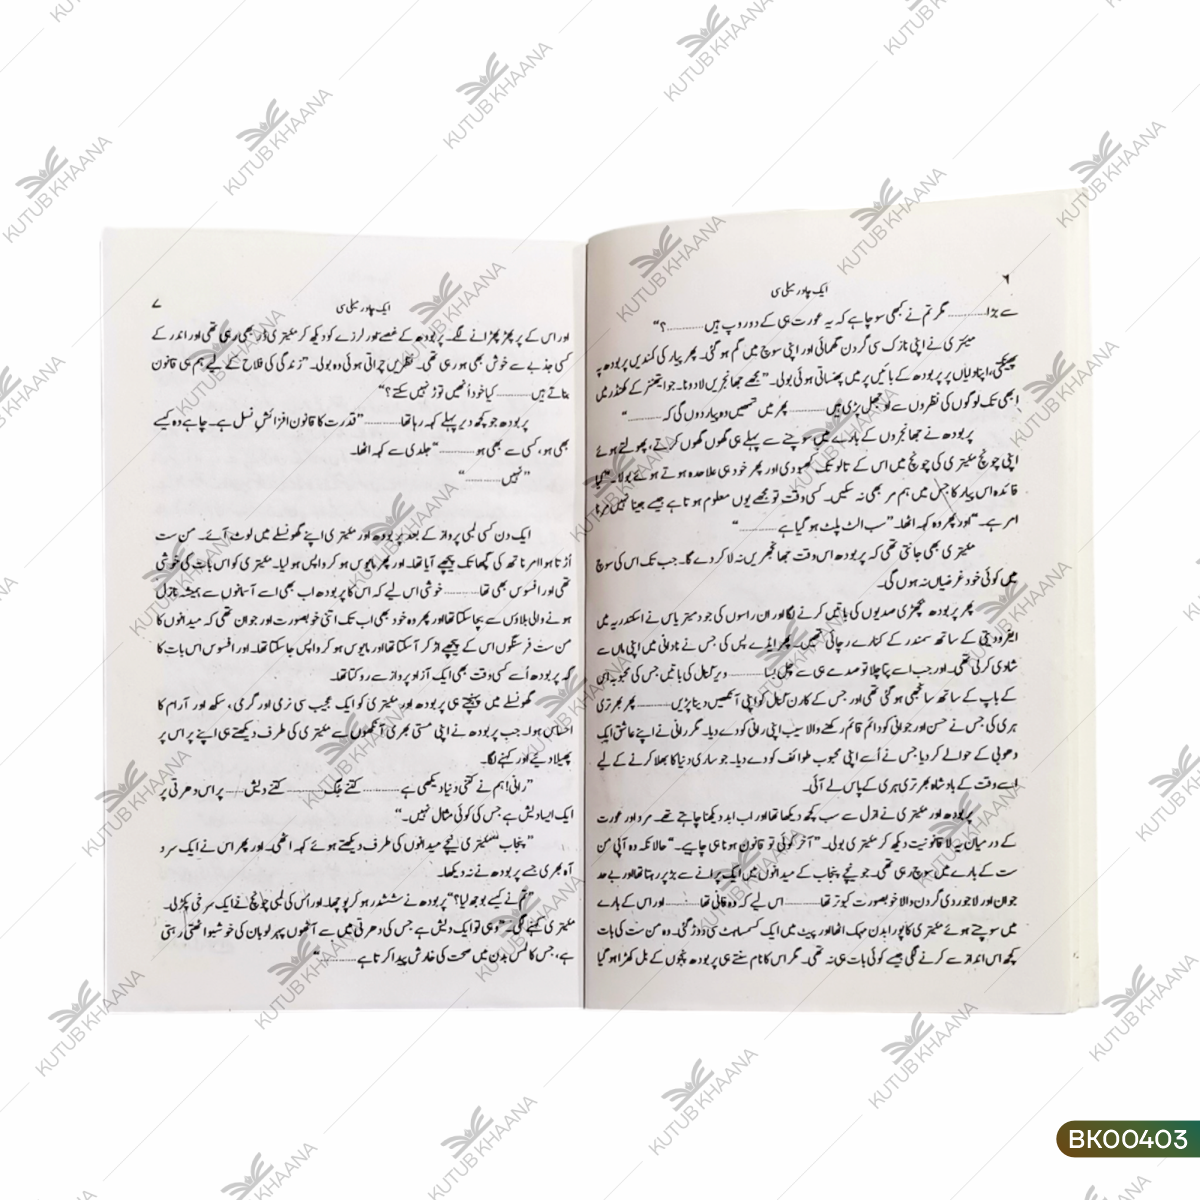 ۶
ایک چادر میلی سی
سے بڑا ............ مگر تم نے کبھی سوچا ہے کہ یہ عورت ہی کے دو روپ ہیں ............ ؟"
میتری نے اپنی نازک سی گردن گھمائی اور اپنی سوچ میں گم ہو گئی۔ پھر پیار کی کمندیں پربودھ پہ
پھینکتی، اپنا دلیاں پر پربودھ کے بائیں پر میں پھنساتی ہوئی بولی۔ "مجھے جھانجریں لا دو نا۔ جو ایتھنز کے کھنڈر میں
ابھی تک لوگوں کی نظروں سے اوجھل پڑی ہیں ............ پھر میں تمھیں وہ پیار دوں گی کہ ............ "
پربودھ نے جھانجروں کے بارے میں سوچنے سے پہلے ہی گھوں گھوں کرتے، پھولتے ہوئے
اپنی چونچ میتری کی چونچ میں اس کے تالو تک کھبو دی اور پھر خود ہی علاحدہ ہوتے ہوئے بولا۔ "کیا
فائدہ اس پیار کا جس میں ہم مر بھی نہ سکیں۔ کسی وقت تو مجھے یوں معلوم ہوتا ہے جیسے جینا نہیں مرنا
امر ہے۔" اور پھر وہ کہہ اٹھا۔ "سب الٹ پلٹ ہو گیا ہے ............ "
میتری بھی جانتی تھی کہ پربودھ اس وقت جھانجریں نہ لا کر دے گا۔ جب تک اس کی سوچ
میں کوئی خود غرضیاں نہ ہوں گی۔
پھر پربودھ بچھڑی صدیوں کی باتیں کرنے لگا اور ان راسوں کی جو دمیتریاس نے اسکندریہ میں
ایفرودیتی کے ساتھ سمندر کے کنارے رچائی تھیں۔ پھر ایڈے پس کی جس نے نادانی میں اپنی ماں سے
شادی کر لی تھی۔ اور جب اسے پتا چلا تو صدمے ہی سے چل بسا ............ ویر کنال کی باتیں جس کی محبوبہ اسی
کے باپ کے ساتھ سانجھی ہو گئی تھی اور جس کے کارن کنال کو اپنی آنکھیں دینا پڑیں ............ پھر بھرتری
ہری کی جس نے حسن اور جوانی کو دائم قائم رکھنے والا سیب اپنی رانی کو دے دیا۔ مگر رانی نے اپنے عاشق ایک
دھوبی کے حوالے کر دیا جس نے اُسے اپنی محبوب طوائف کو دے دیا۔ جو ساری دنیا کا بھلا کرنے کے لیے
اسے وقت کے بادشاہ بھرتری ہری کے پاس لے آئی۔
پربودھ اور میتری نے ازل سے سب کچھ دیکھا تھا اور اب ابد دیکھنا چاہتے تھے۔ مرد اور عورت
کے درمیان یہ لاقانونیت دیکھ کر میتری بولی۔ "آخر کوئی تو قانون ہونا ہی چاہیے۔" حالانکہ وہ آپی من
ست کے بارے میں سوچ رہی تھی۔ جو نیچے پنجاب کے میدانوں میں ایک پرانے سے بڑ پر رہتا تھا اور بے حد
جوان اور لاجوردی گردن والا خوبصورت کبوتر تھا ............ اس لیے کہ وہ فانی تھا ............ اور اس کے بارے
میں سوچتے ہوئے میتری کا پورا بدن مہک اٹھا اور پیٹ میں ایک کسمساہٹ سی دوڑ گئی۔ وہ من ست کی بات
کچھ اس انداز سے کرنے لگی جیسے کوئی بات ہی نہ تھی۔ مگر اس کا نام سنتے ہی پربودھ پنجوں کے بل کھڑا ہو گیا
ایک چادر میلی سی
۷
اور اس کے پر پھڑپھڑانے لگے۔ پربودھ کے غصے اور لرزے کو دیکھ کر میتری ڈر بھی رہی تھی اور اندر کے
کسی جذبے سے خوش بھی ہو رہی تھی۔ نظریں چراتی ہوئی وہ بولی۔ "زندگی کی فلاح کے لیے ہم ہی قانون
بناتے ہیں ............ کیا خود اُنھیں توڑ نہیں سکتے؟"
پربودھ جو کچھ دیر پہلے کہہ رہا تھا ............ "قدرت کا قانون افزائشِ نسل ہے۔ چاہے وہ کیسے
بھی ہو، کسی سے بھی ہو ............ " جلدی سے کہہ اٹھا۔
"نہیں ............ "
ایک دن کسی لمبی پرواز کے بعد پربودھ اور میتری اپنے گھونسلے میں لوٹ آئے۔ من ست
اُڑتا ہوا امرناتھ کی گپھا تک پیچھے آیا تھا۔ اور پھر مایوس ہو کر واپس ہو لیا۔ میتری کو اس بات کی خوشی
تھی اور افسوس بھی تھا ............ خوشی اس لیے کہ اس کا پربودھ اب بھی اسے آسمانوں سے ہمیشہ نازل
ہونے والی بلاؤں سے بچا سکتا تھا اور پھر وہ خود بھی اب تک اتنی خوبصورت اور جوان تھی کہ میدانوں کا
من ست فرسنگوں اس کے پیچھے اڑ کر آ سکتا تھا اور مایوس ہو کر واپس جا سکتا تھا۔ اور افسوس اس بات کا
کہ پربودھ اُسے کسی وقت بھی ایک آزاد پرواز سے روکتا تھا۔
گھونسلے میں پہنچتے ہی پربودھ اور میتری کو ایک عجیب سی نرمی اور گرمی، سکھ اور آرام کا
احساس ہوا۔ جب پربودھ نے اپنی مستی بھری آنکھوں سے میتری کی طرف دیکھتے ہی اپنے پر اس پر
پھیلا دیے اور کہنے لگا۔
"رانی! ہم نے کتنی دنیا دیکھی ہے ............ کتنے جگ ............ کتنے دیش ...... پر اس دھرتی پر
ایک ایسا دیش ہے جس کی کوئی مثال نہیں۔"
"پنجاب" میتری نیچے میدانوں کی طرف دیکھتے ہوئے کہہ اٹھی۔ اور پھر اس نے ایک سرد
آہ بھری جسے پربودھ نے نہ دیکھا۔
"تم نے کیسے بوجھ لیا؟" پربودھ نے ششدر ہو کر پوچھا۔ اور اُس کی لمبی چونچ نے ایک سرخی پکڑ لی۔
میتری کہنے لگی۔ "وہی تو ایک دیش ہے جس کی دھرتی میں سے آٹھوں پہر لوبان کی خوشبو اٹھتی رہتی
ہے، جس کا لمس بدن میں صحت کی خارش پیدا کرتا ہے ............ "
KUTUB KHAANA
BK00403